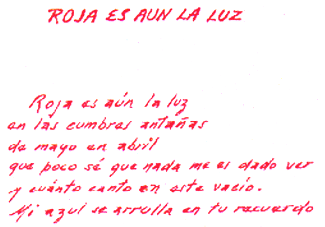 ROJA ES AUN LA LUZ
Roja es aún la luz
en las cumbres antañas
de mayo en abril
que poco sé que nada me es dado ver
y cuánto canto en este vacío.
Mi azul se arrulla en tu recuerdo